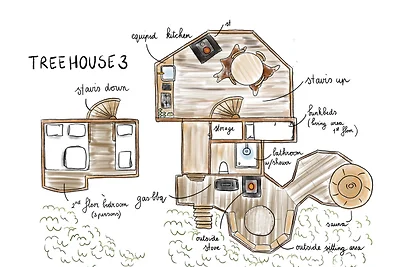 st
equiped kitchen
TREEHOUSE 3
stairs up
stairs down
bunkbeds
(living area
1st floor)
storage
bathroom
w/shower
2nd floor bedroom
(3 persons)
gas bbq
sauna
outside
stove
outside sitting area